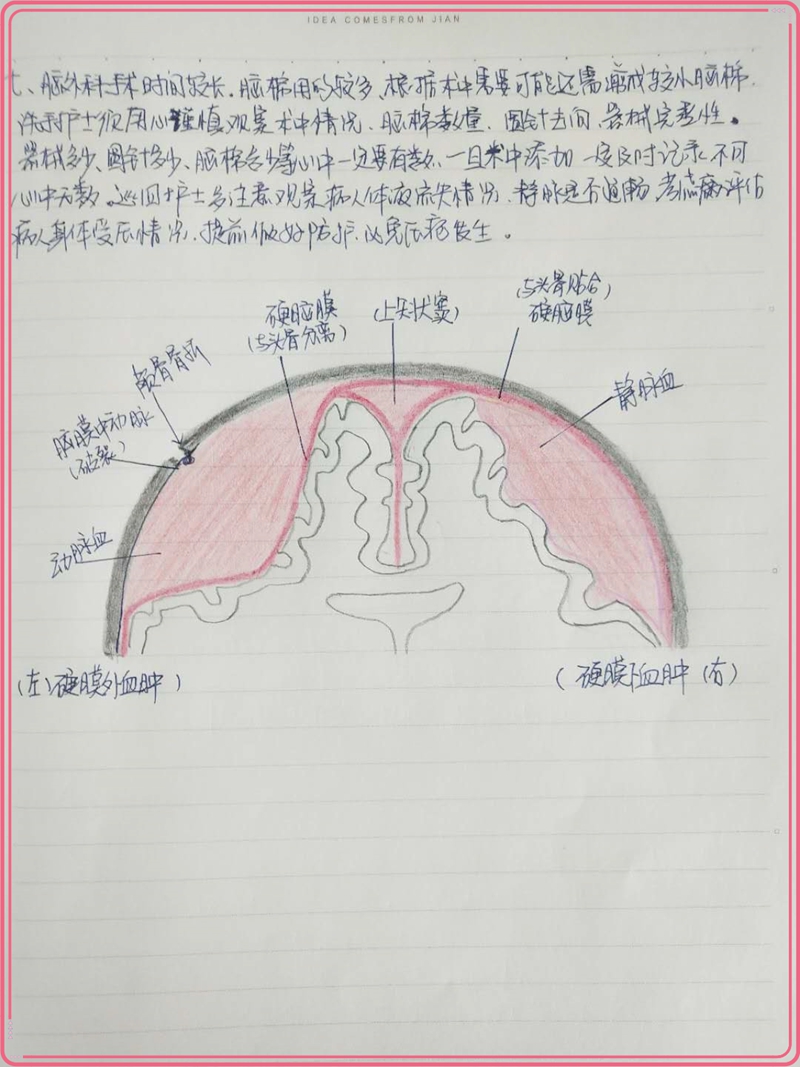 IDEA COMESFROM JIAN
七、脑外科手术时间较长,脑棉用的较多,根据术中需要可能还需剪成较小脑棉,
洗手护士须用心谨慎观察术中情况、脑棉数量、圆针去向、器械完整性。
器械多少、圆针多少、脑棉多少等心中一定要有数,一旦术中添加一定及时记录,不可
心中无数。巡回护士多注意观察病人体液流失情况,静脉是否通畅,评估
病人身体受压情况,提前做好防护,以免压疮发生。
硬脑膜
(与头骨分离)
(上矢状窦)
(与头骨贴合)
硬脑膜
颅骨骨折
静脉血
脑膜中动脉
(破裂)
动脉血
(左)硬膜外血肿)
(硬膜下血肿(右)